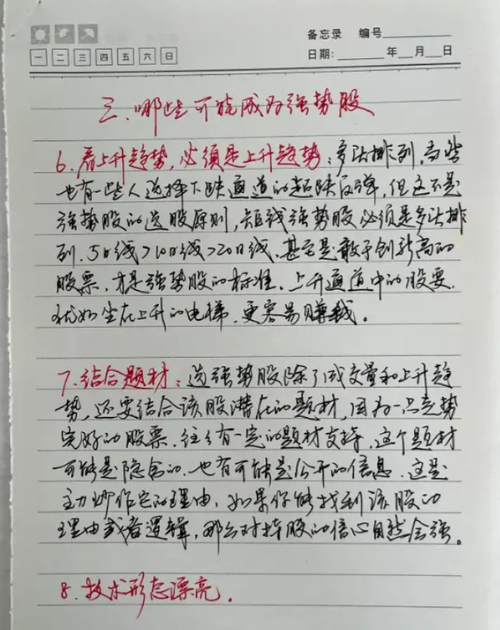 备忘录 编号
一 二 三 四 五 六 日
日期: 年 月 日
三.哪些可能成为强势股
6.看上升趋势,必须是上升趋势:多头排列,当然
也有一些人选择下跌通道的超跌反弹,但这不是
强势股的选股原则,短线强势股必须是多头排
列.5日线>10日线>20日线.甚至是敢于创新高的
股票.才是强势股的标准.上升通道中的股票.
犹如坐在上升的电梯.更容易赚钱。
7.结合题材:选强势股除了成交量和上升趋
势,还要结合该股潜在的题材,因为一只走势
完好的股票.往往有一定的题材支持,这个题材
可能是隐含的.也有可能是公开的信息.这是
主力炒作它的理由,如果你能找到该股的
理由或者逻辑,那么对持股的信心自然会强。
8.技术形态漂亮.